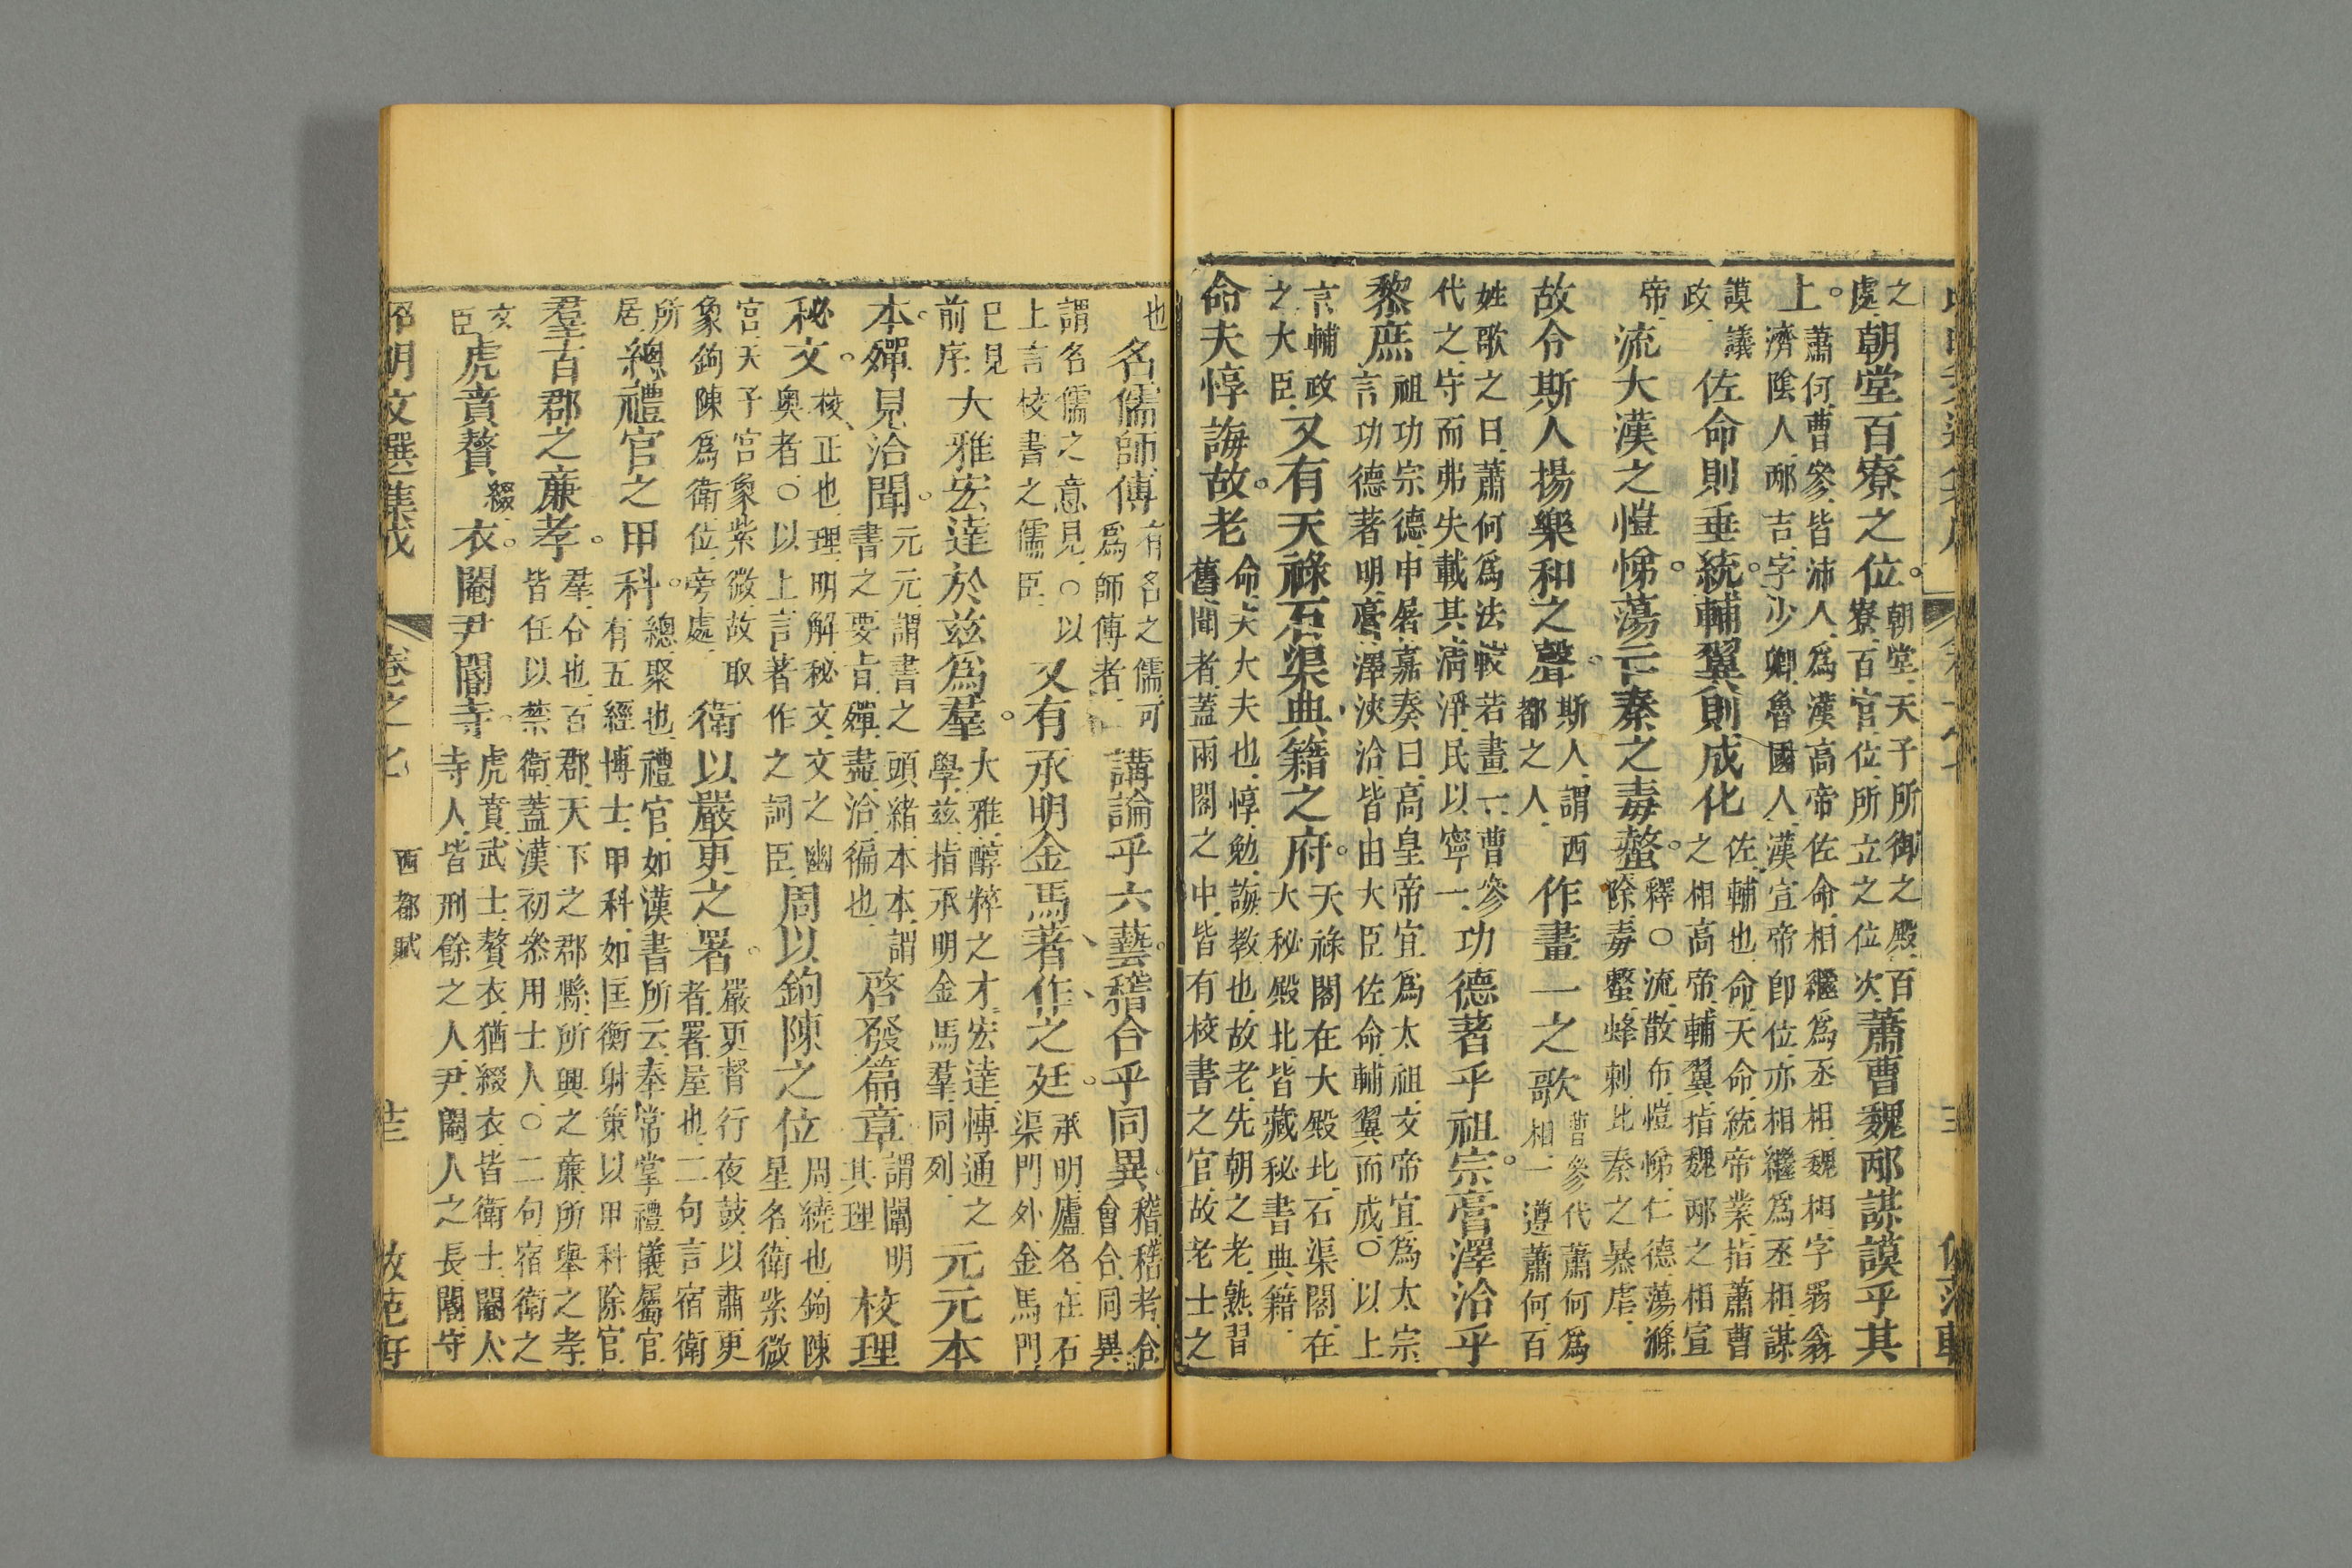 之處朝堂百寮之位朝堂天子所御之殿百寮百官位所立之位次蕭曹魏邴謀謨乎其
上蕭何曹參皆沛人爲漢高帝佐命相繼爲丞相魏相字弱翁濟陰人邴吉字少卿魯國人漢宣帝卽位亦相繼爲丞相謀
謨議政佐命則垂統輔翼則成化佐輔也命天命統帝業指蕭曹之相高帝輔翼指魏邴之相宣
帝流大漢之愷悌蕩亡秦之毒螫釋〇流散布愷悌仁德蕩滌除毒螫蜂刺比秦之暴虐
故令斯人揚樂和之聲斯人謂西都之人作畫一之歌曹參代蕭何爲相一遵蕭何百
姓歌之曰蕭何爲法較若畫一曹參代之守而弗失載其淸淨民以寧一功德著乎祖宗膏澤洽乎
黎庶祖功宗德申屠嘉奏曰高皇帝宜爲太祖文帝宜爲太宗言功德著明膏澤浹洽皆由大臣佐命輔翼而成〇以上
言輔政之大臣又有天祿石渠典籍之府天祿閣在大殿北石渠閣在大秘殿北皆藏秘書典籍
命夫惇誨故老命夫大夫也惇勉誨教也故老先朝之老熟習舊聞者蓋兩閣之中皆有校書之官故老士之
也名儒師傅有名之儒可爲師傅者講論乎六藝稽合乎同異稽稽考合會合同異
謂名儒之意見〇以上言校書之儒臣又有承明金馬著作之廷承明廬名在石渠門外金馬門
已見前序大雅宏達於茲爲羣大雅醇粹之才宏達博通之學茲指承明金馬羣同列元元本
本殫見洽聞元元謂書之頭緒本本謂書之要旨殫盡洽徧也啓發篇章謂闡明其理校理
秘文校正也理明解秘文文之幽奥者〇以上言著作之詞臣周以鉤陳之位周繞也鉤陳星名衛紫微
宮天子宮象紫微故取象鉤陳爲衛位旁處衛以嚴更之署嚴更督行夜鼓以肅更者署屋也二句言宿衛
所居總禮官之甲科總聚也禮官如漢書所云奉常掌禮儀屬官有五經博士甲科如匡衡射策以甲科除官
羣百郡之廉孝羣合也百郡天下之郡縣所興之廉所舉之孝皆任以禁衛蓋漢初叅用士人〇二句宿衛之
文臣虎賁贅綴衣閹尹閽寺虎賁武士贅衣猶綴衣皆衛士閹人寺人皆刑餘之人尹閹人之長閽守
昭明文選集成
卷之
西都賦